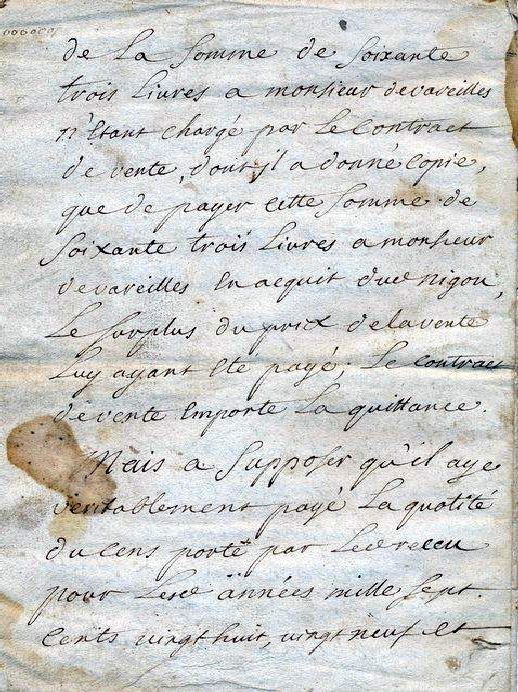 de La Somme de Soixante
trois Livres a monsieur devareilles
n'Etant chargé par Le contract
de vente, dont il a donné copie,
que de payer cette Somme de
Soixante trois Livres a monsieur
devareilles En acquit dud nigou,
Le Surplus du prix de la vente
Luy ayant Eté payé; Le contract
de vente Emporte La quittance.
Mais a Supposer qu'il aye
veritablement payé La quotité
du cens porté par Led reccu
pour Lesd années mille Sept
cents vingt huit, vingt neuf et